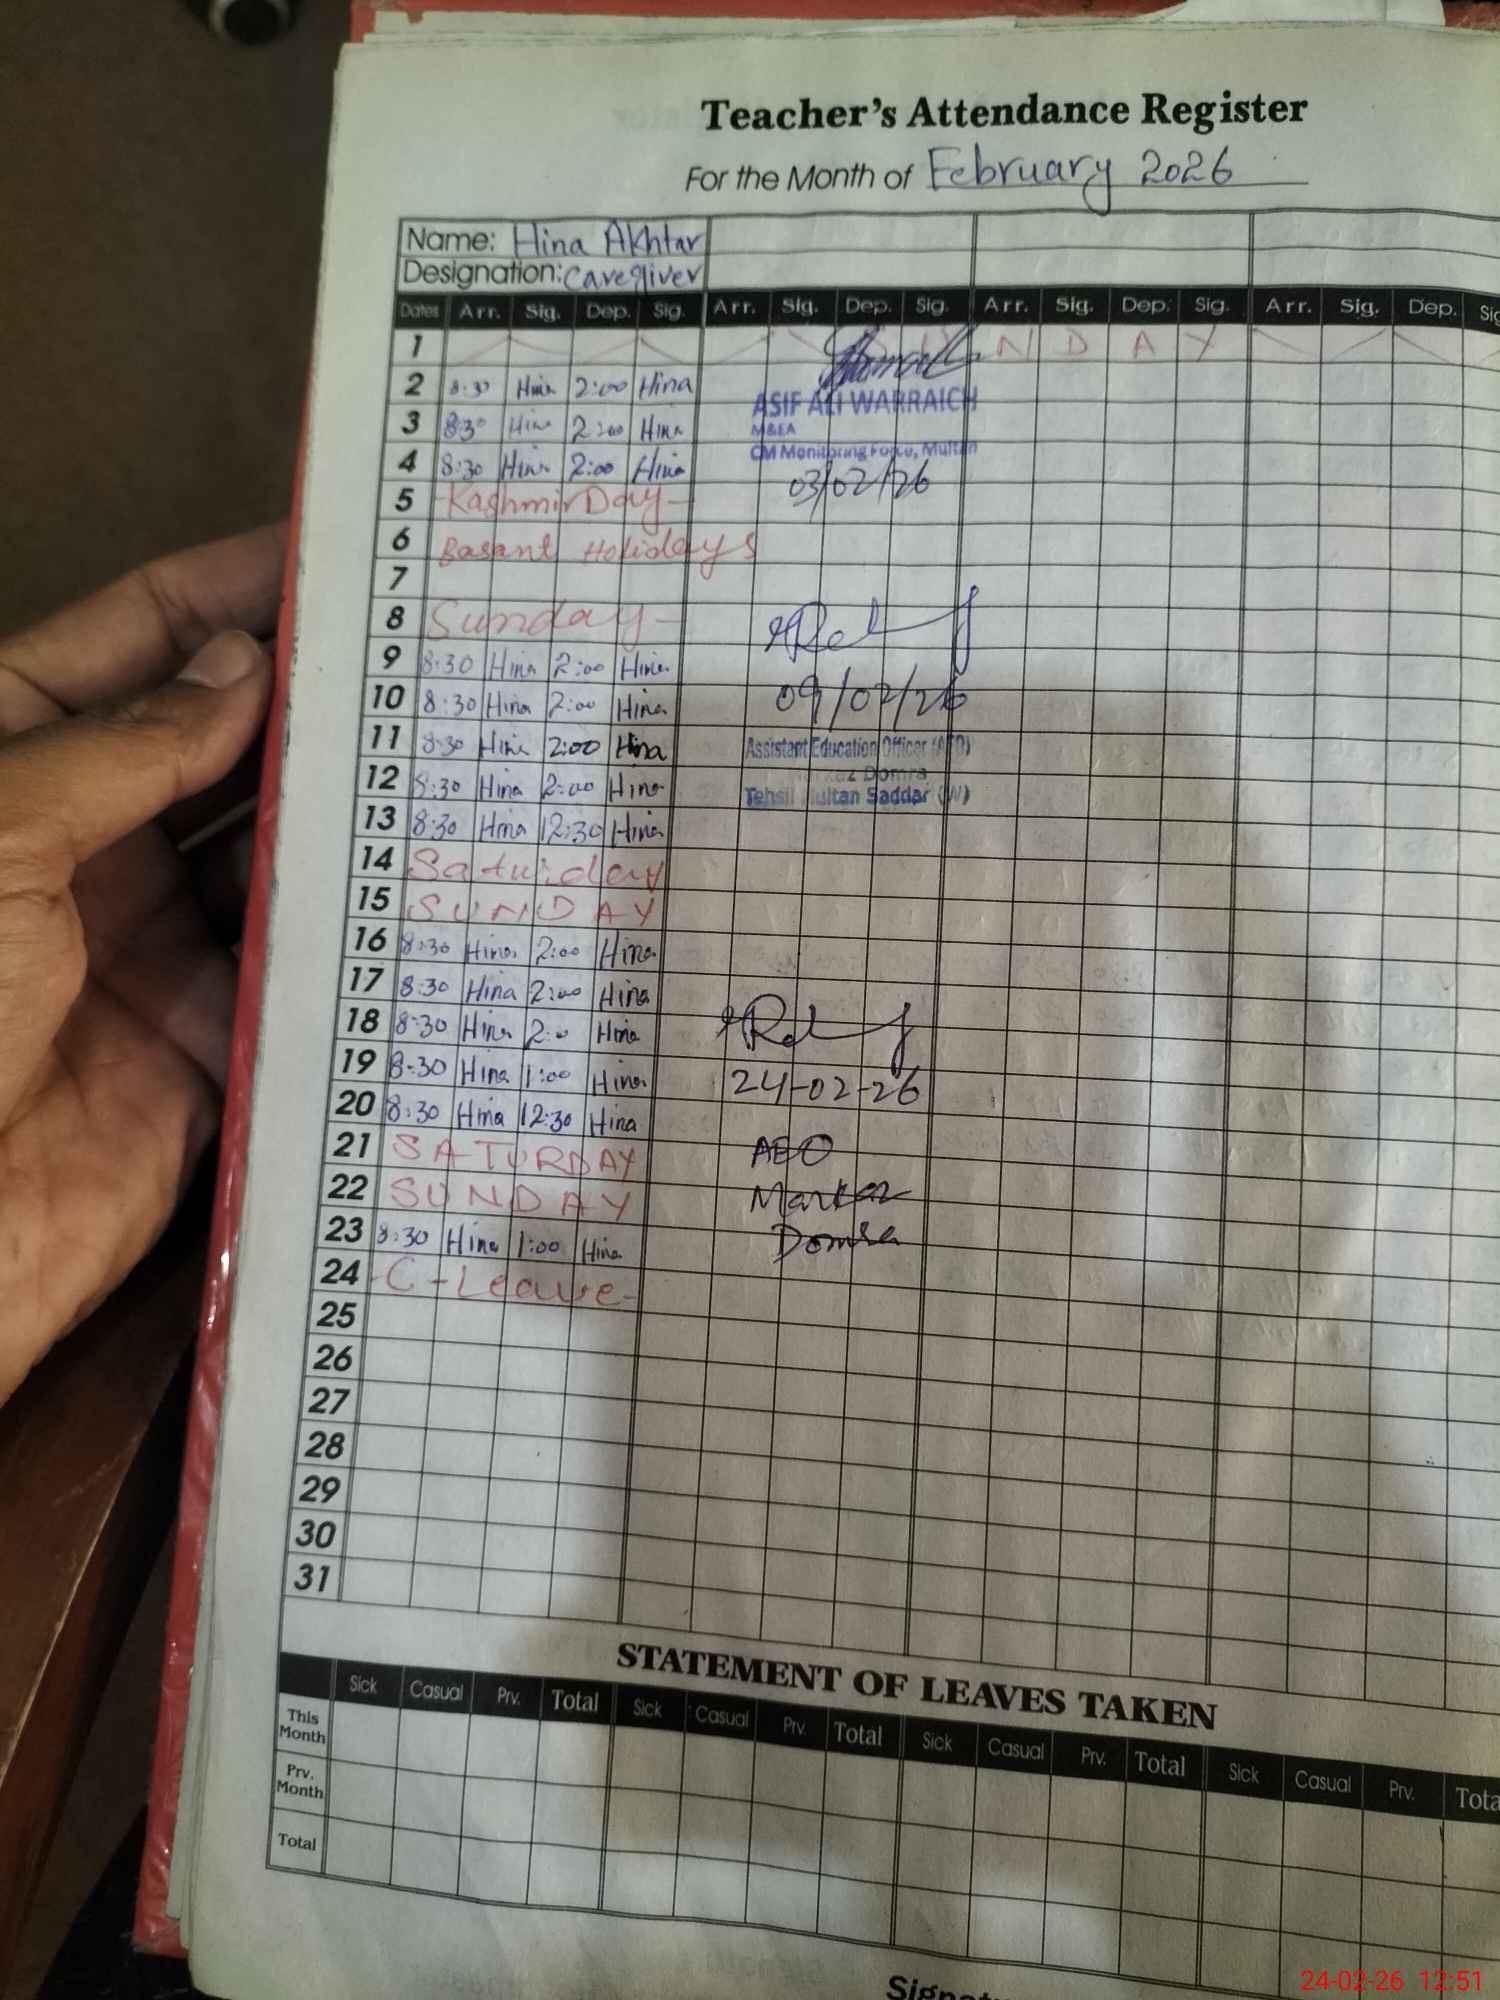 Teacher's Attendance Register
For the Month of February 2026
Name: Hina Akhtar
Designation: Caregiver
Dates Arr. Sig. Dep. Sig. Arr. Sig. Dep. Sig. Arr. Sig. Dep. Sig. Arr. Sig. Dep. Sig
1 N D A Y
2 8:30 Hina 2:00 Hina
ASIF ALI WARRAICH
3 8:30 Hina 2:00 Hina
M&EA
CM Monitoring Force, Multan
4 8:30 Hina 2:00 Hina
03/02/26
5 Kashmir Day
6 Basant Holidays
7
8 Sunday
9 8:30 Hina 2:00 Hina
09/02/26
10 8:30 Hina 2:00 Hina
11 8:30 Hina 2:00 Hina
Assistant Education Officer (AEO)
Domra
12 8:30 Hina 2:00 Hina
Tehsil Multan Saddar (W)
13 8:30 Hina 12:30 Hina
14 Saturday
15 SUNDAY
16 8:30 Hina 2:00 Hina
17 8:30 Hina 2:00 Hina
18 8:30 Hina 2:00 Hina
19 8:30 Hina 1:00 Hina
24-02-26
20 8:30 Hina 12:30 Hina
21 SATURDAY
AEO
22 SUNDAY
Markaz
23 8:30 Hina 1:00 Hina
Domra
24 C-Leave
25
26
27
28
29
30
31
STATEMENT OF LEAVES TAKEN
Sick Casual Prv. Total Sick Casual Prv. Total Sick Casual Prv. Total Sick Casual Prv. Tota
This Month
Prv. Month
Total
Signat
24-02-26 12:51